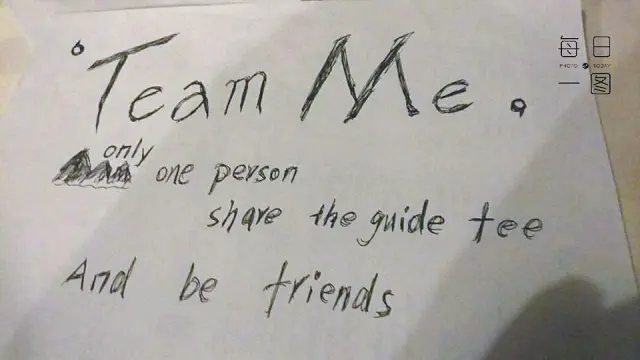 Team Me.
only
one person
share the guide tee
And be friends
每日
PHOTO TODAY
一图